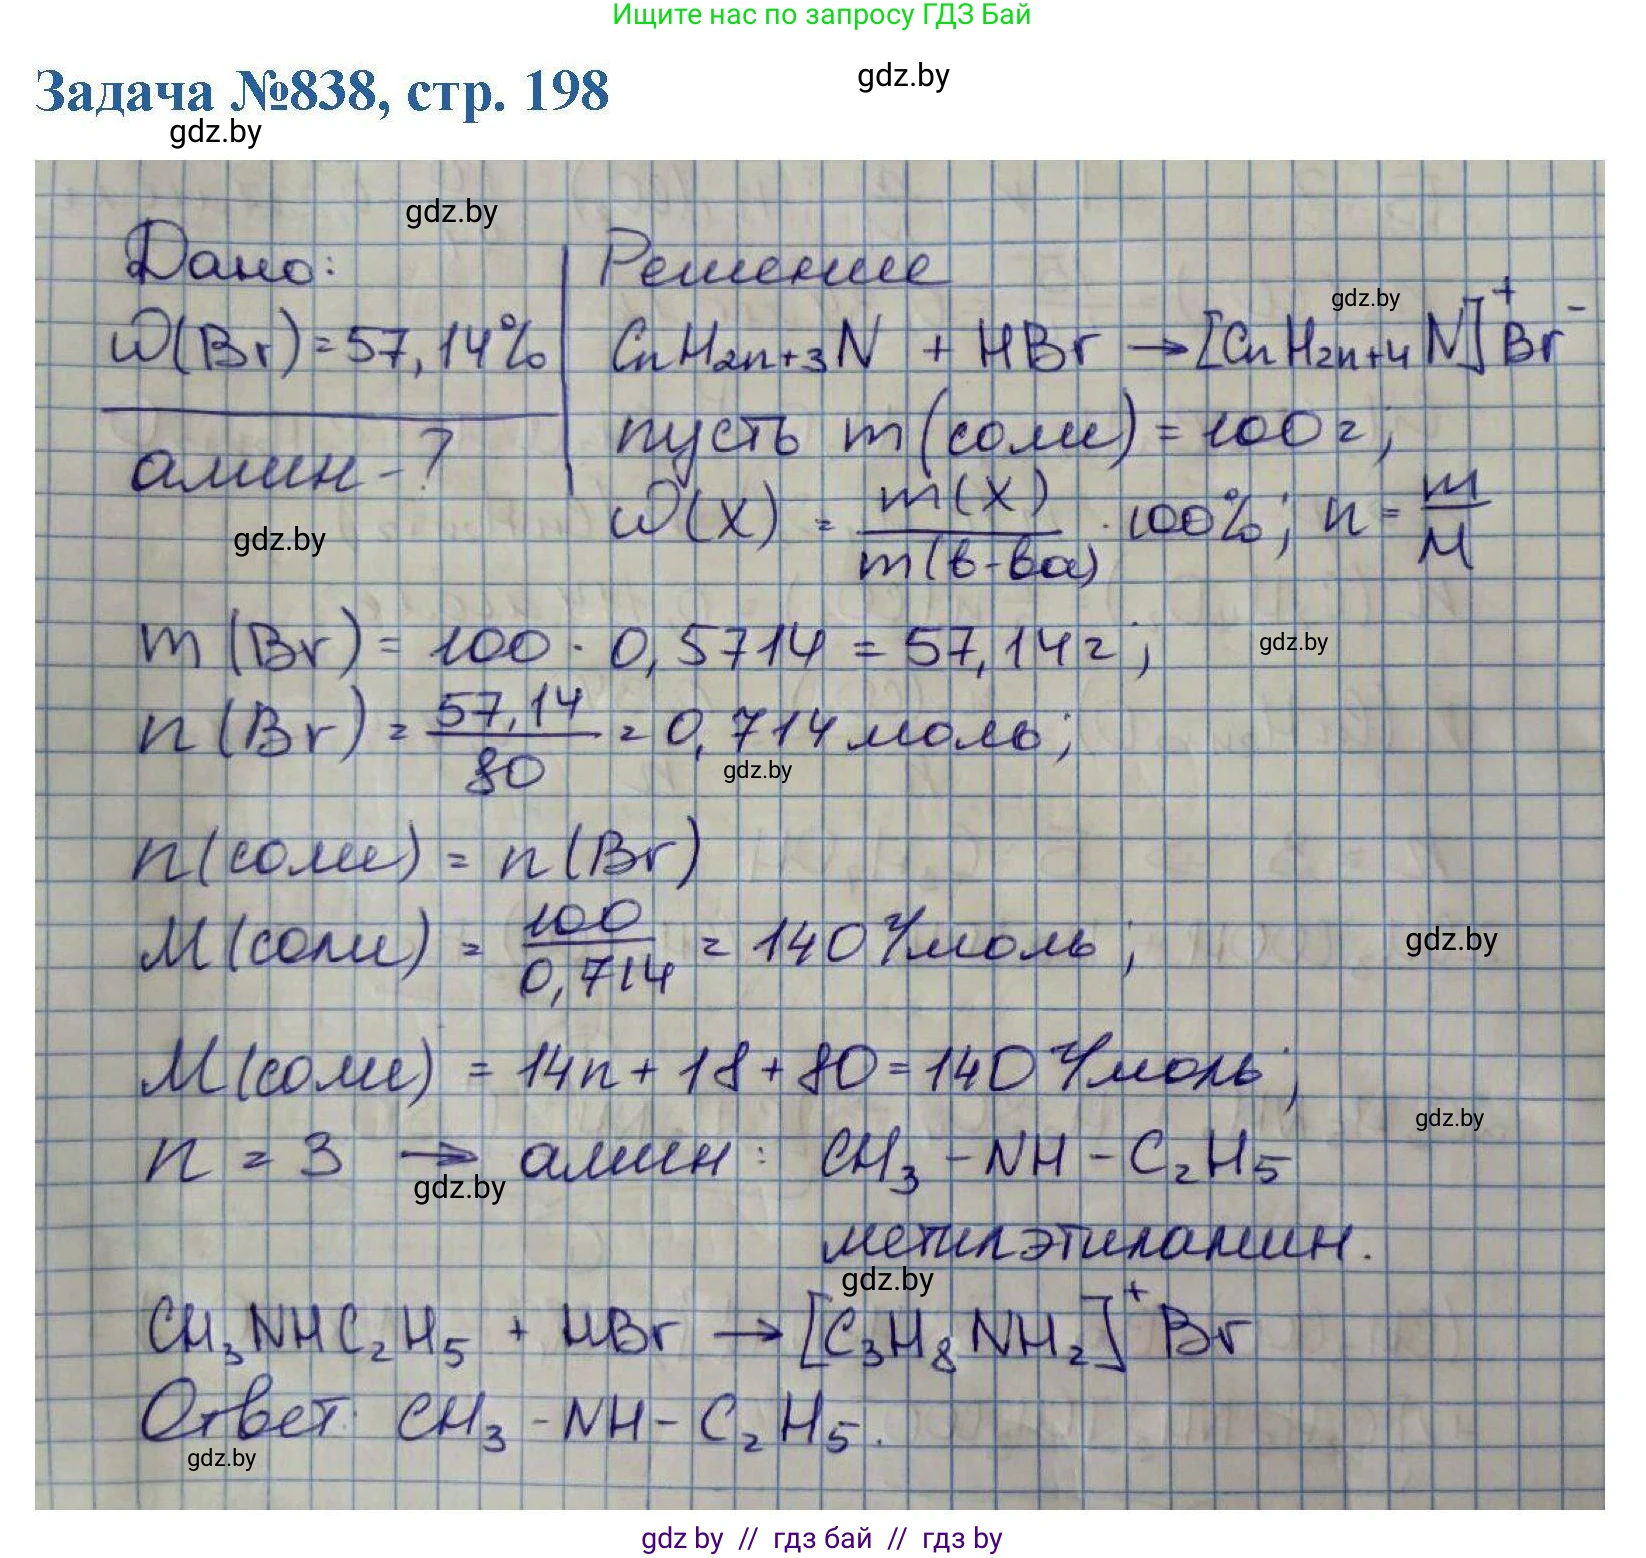 Ищите нас по запросу ГДЗ Бай
Задача №838, стр. 198
gdz.by
gdz.by
gdz.by
Дано:
Решение
ω(Br) = 57,14%
CnH₂n+₃N + HBr → [CnH₂n+₄N]⁺Br⁻
gdz.by
амин - ?
пусть m(соли) = 100г;
ω(X) = m(X)/m(в-ва) · 100%; n = m/M
gdz.by
m(Br) = 100 · 0,5714 = 57,14г;
gdz.by
n(Br) = 57,14/80 = 0,714 моль;
gdz.by
n(соли) = n(Br)
M(соли) = 100/0,714 = 140 г/моль;
gdz.by
M(соли) = 14n + 18 + 80 = 140 г/моль;
gdz.by
n = 3 → амин: CH₃ - NH - C₂H₅
gdz.by
метилэтиламин.
gdz.by
CH₃NHC₂H₅ + HBr → [C₃H₈NH₂]⁺Br
Ответ: CH₃ - NH - C₂H₅.
gdz.by
gdz by // гдз бай // гдз by